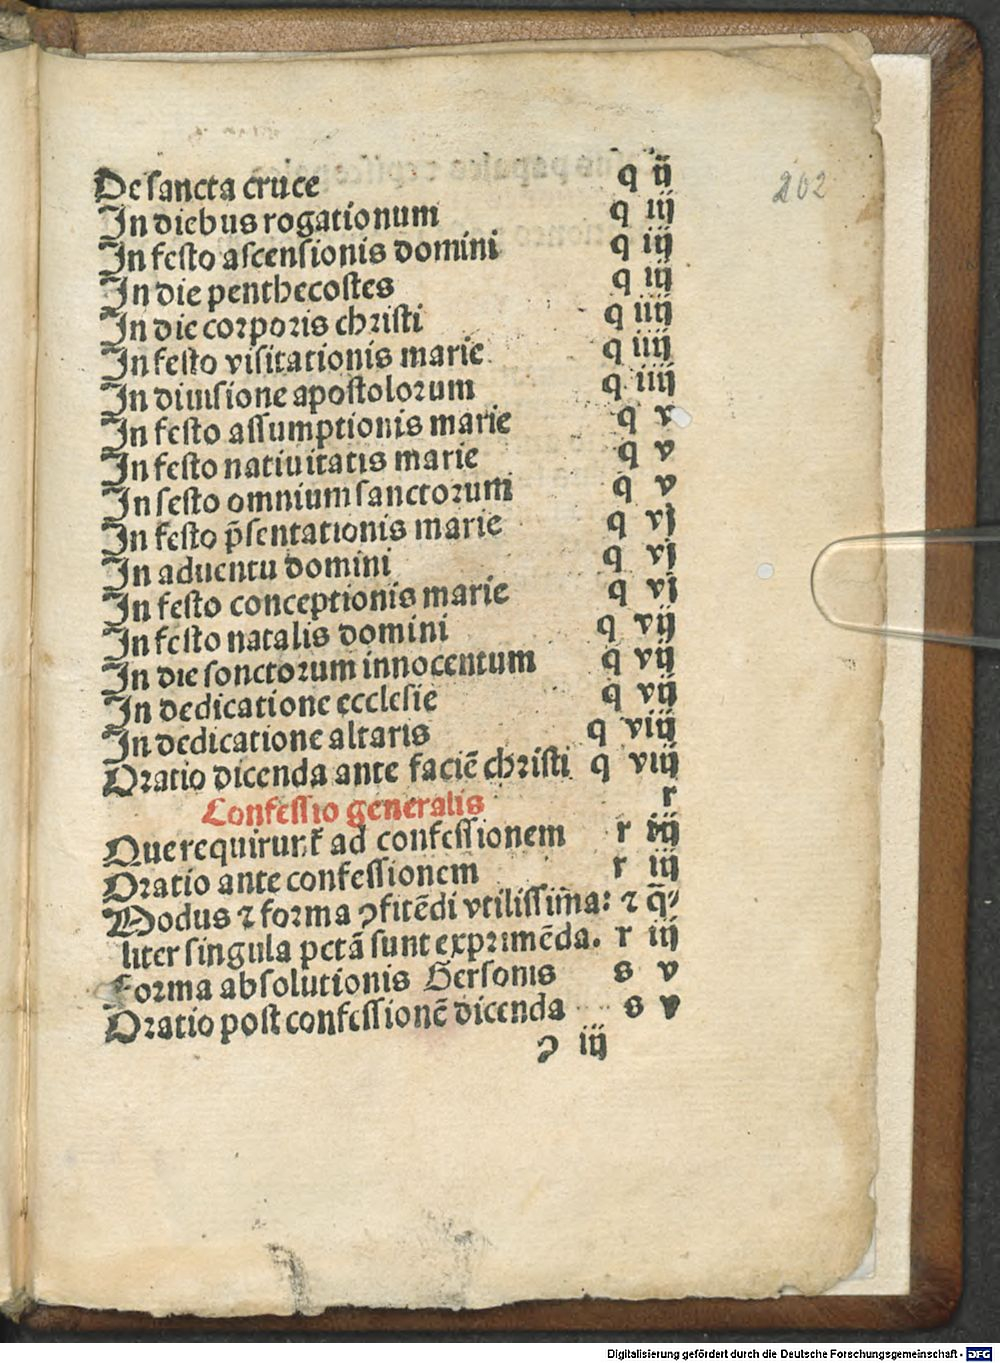 De sancta cruce q ij
In diebus rogationum q iij
In festo ascensionis domini q iij
In die penthecostes q iij
In die corporis christi q iiij
In festo visitationis marie q iiij
In diuisione apostolorum q iiij
In festo assumptionis marie q v
In festo natiuitatis marie q v
In festo omnium sanctorum q v
In festo p̄sentationis marie q vj
In aduentu domini q vj
In festo conceptionis marie q vj
In festo natalis domini q vij
In die sonctorum innocentum q vij
In dedicatione ecclesie q vij
In dedicatione altaris q viij
Oratio dicenda ante faciē christi q viij
Confessio generalis r
Que requirunt᷑ ad confessionem r iij
Oratio ante confessionem r iij
Modus ⁊ forma ꝯfitēdi vtilissim̄a: ⁊ q̄⸗
liter singula pctā sunt exprimēda. r iij
Forma absolutionis Gersonis s v
Oratio post confessionē dicenda s v
ꝯ iij
202
Digitalisierung gefördert durch die Deutsche Forschungsgemeinschaft - DFG